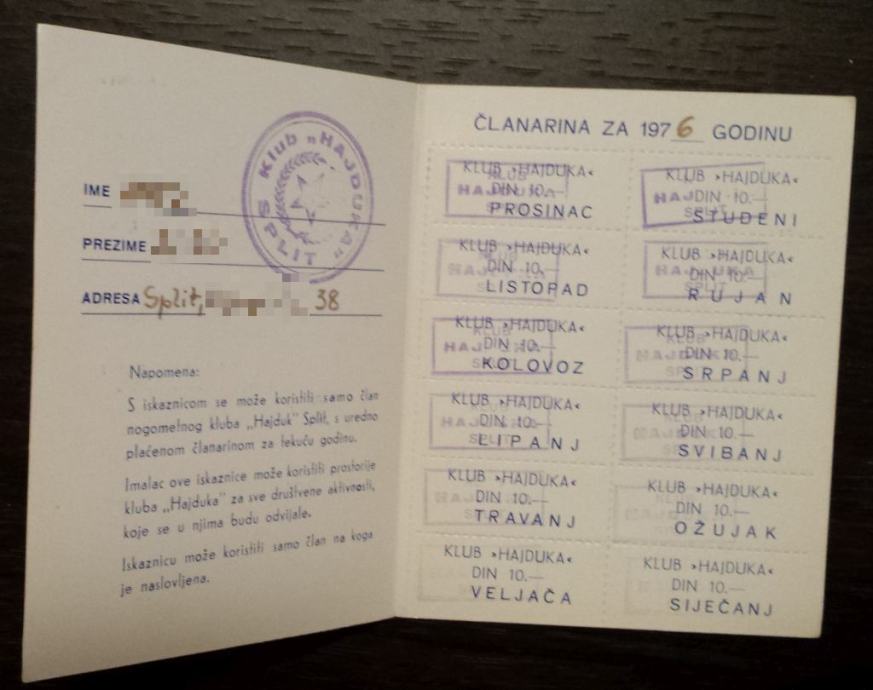 PS Klub „HAJDUKA"
SPLIT
IME
PREZIME
ADRESA Split, 38
Napomena:
S iskaznicom se može koristiti samo član
nogometnog kluba „Hajduk" Split, s uredno
plaćenom članarinom za tekuću godinu.
Imalac ove iskaznice može koristiti prostorije
kluba „Hajduka" za sve društvene aktivnosti,
koje se u njima budu odvijale.
Iskaznicu može koristiti samo član na koga
je naslovljena.
ČLANARINA ZA 1976 GODINU
KLUB »HAJDUKA«
DIN 10.—
PROSINAC
KLUB »HAJDUKA«
DIN 10.—
STUDENI
KLUB »HAJDUKA«
DIN 10.—
LISTOPAD
KLUB »HAJDUKA«
DIN 10.—
RUJAN
KLUB »HAJDUKA«
DIN 10.—
KOLOVOZ
KLUB »HAJDUKA«
DIN 10.—
SRPANJ
KLUB »HAJDUKA«
DIN 10.—
LIPANJ
KLUB »HAJDUKA«
DIN 10.—
SVIBANJ
KLUB »HAJDUKA«
DIN 10.—
TRAVANJ
KLUB »HAJDUKA«
DIN 10.—
OŽUJAK
KLUB »HAJDUKA«
DIN 10.—
VELJAČA
KLUB »HAJDUKA«
DIN 10.—
SIJEČANJ